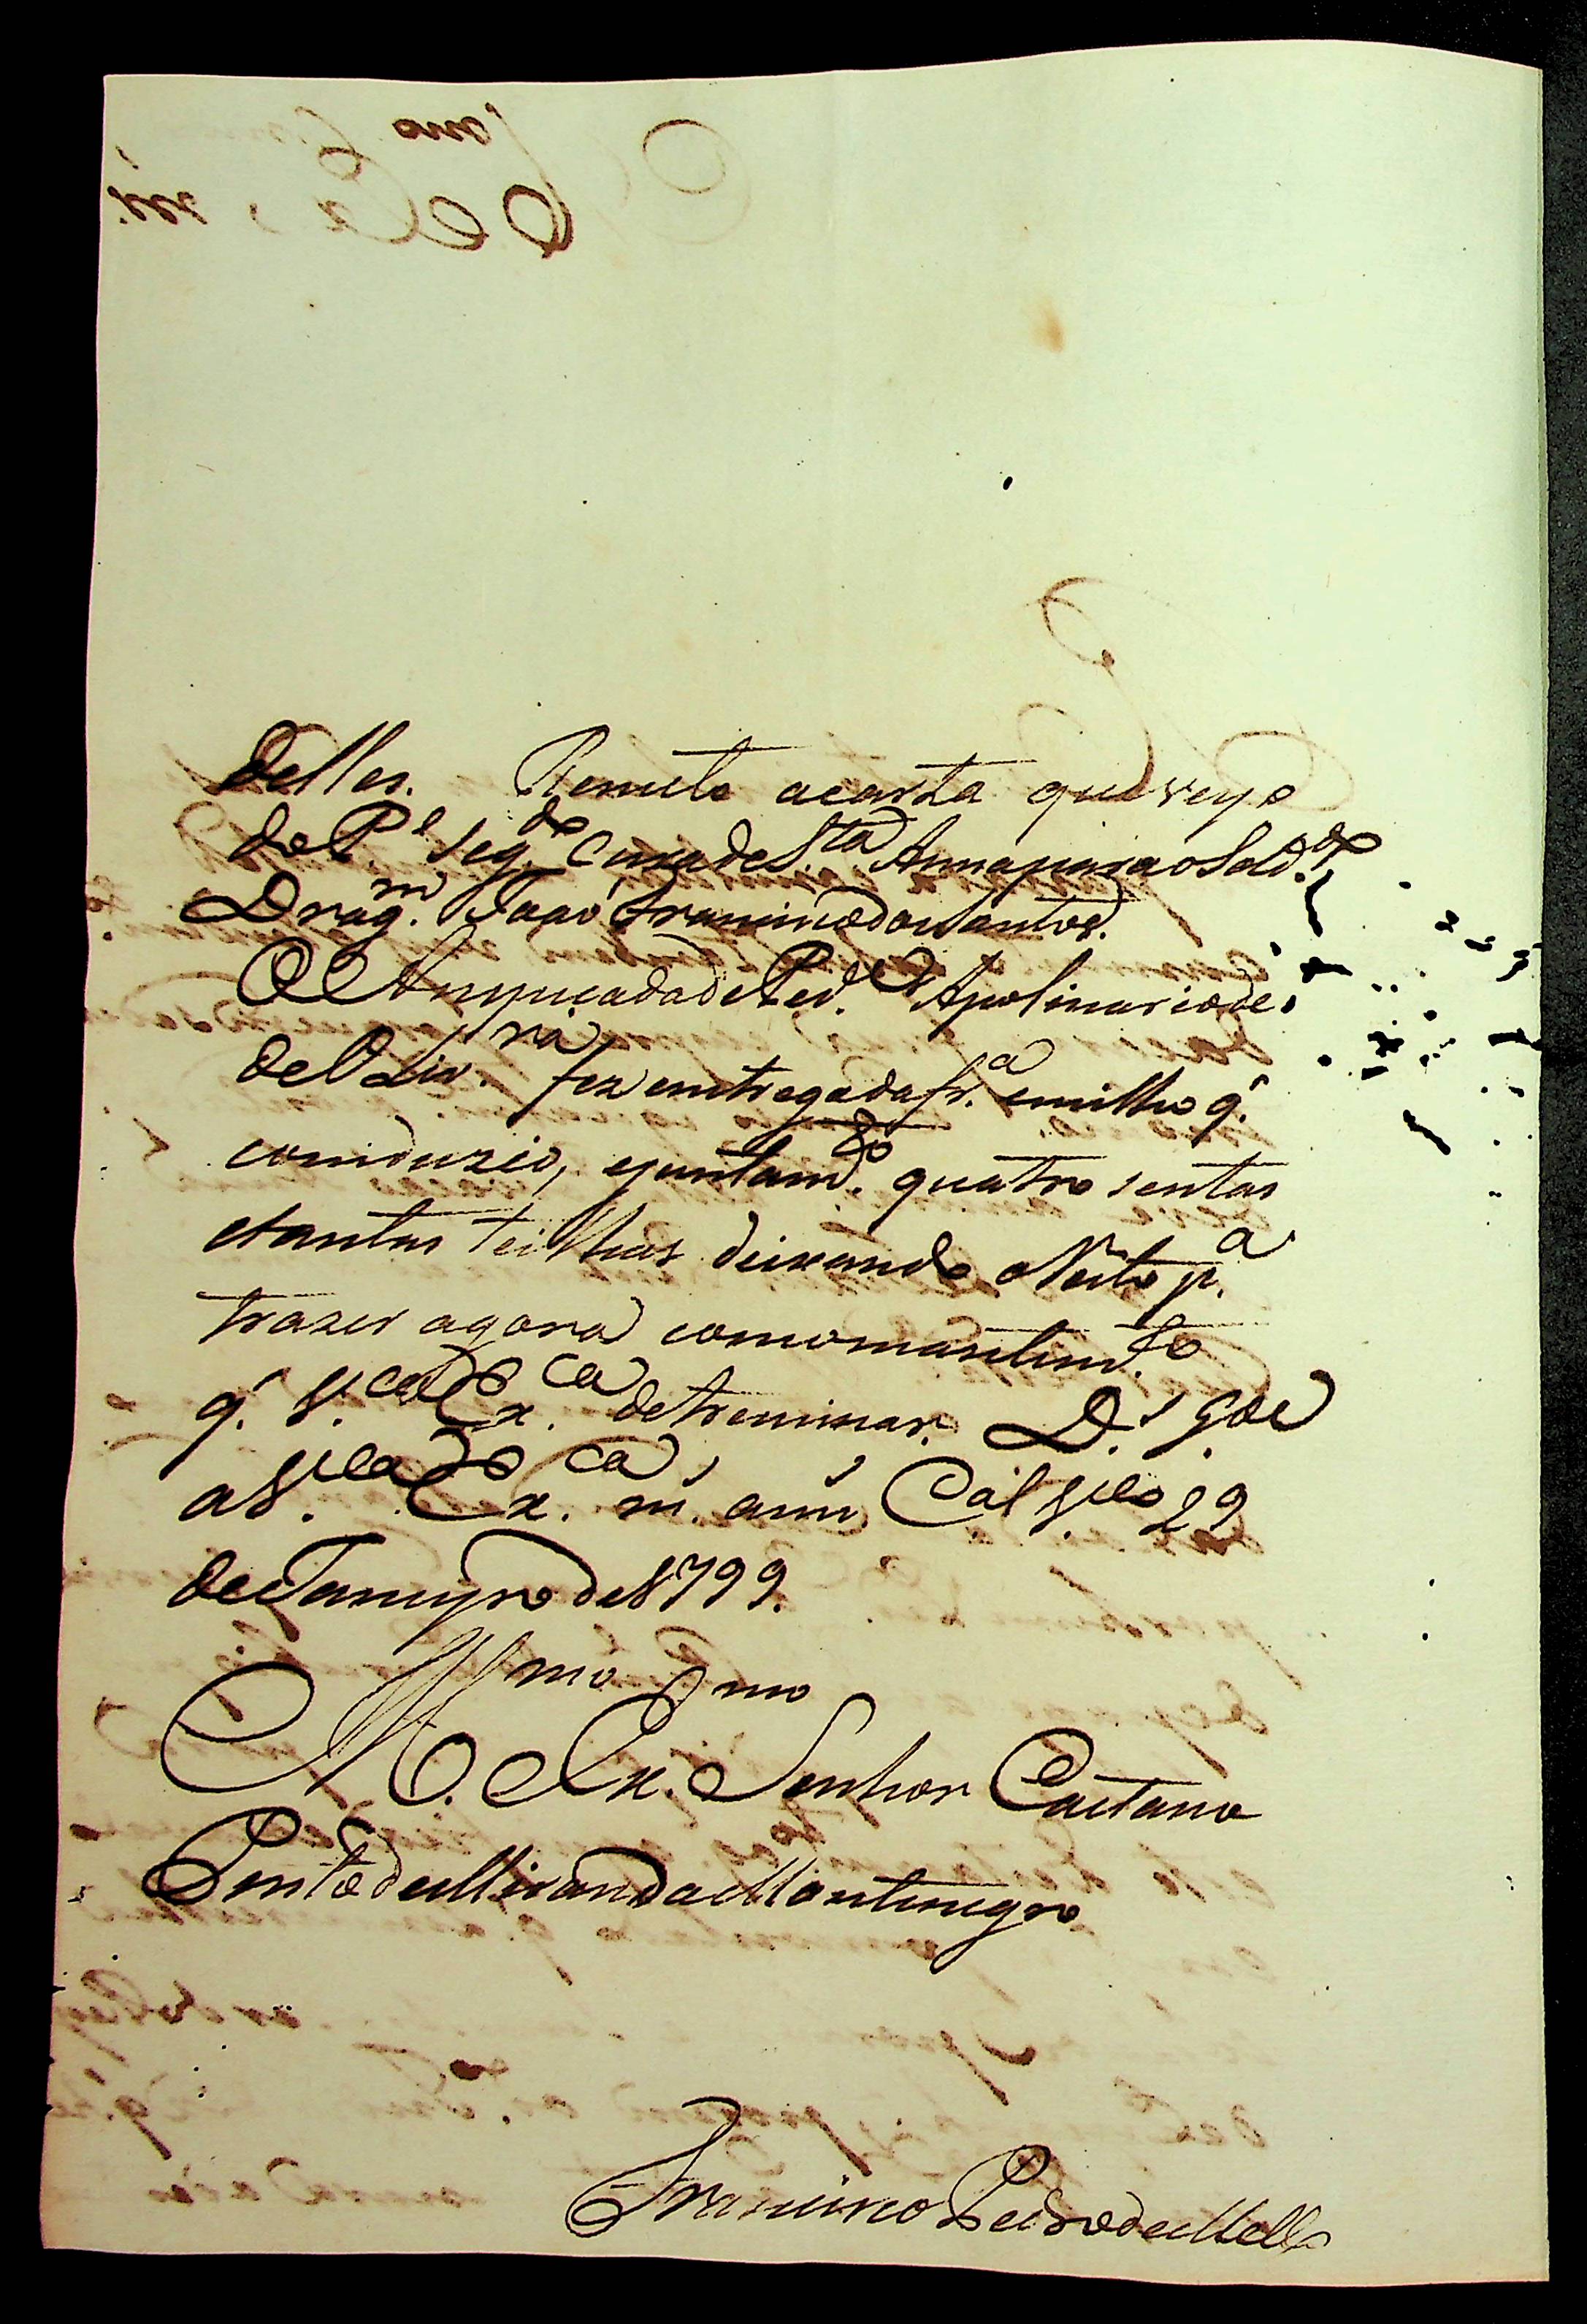 delles. Remeto acarta que veyo
do P.e Seg.do Cura de S.ta Anna para o Sold.do
Drag.m Joaó Francisco dos Santos.
O Anspecada de Ped. Apolinario de
de Oliv.ra fez emtrega da fr.a emilho q.
comduzio, ejuntam.to quatro sentas
etantas teilhas deixando o Resto p.a
trazer agora como mantim.to
q. V.ca Ex.ca detreminar. D.s g.de
a V.ca Ex.ca m. ann. Cazal V.co 29
de Janeyro de 1799.
Ill.mo Ex.mo Senhor Caetano
Pinto de Miranda Montenegro
Francisco Pedro de Mello